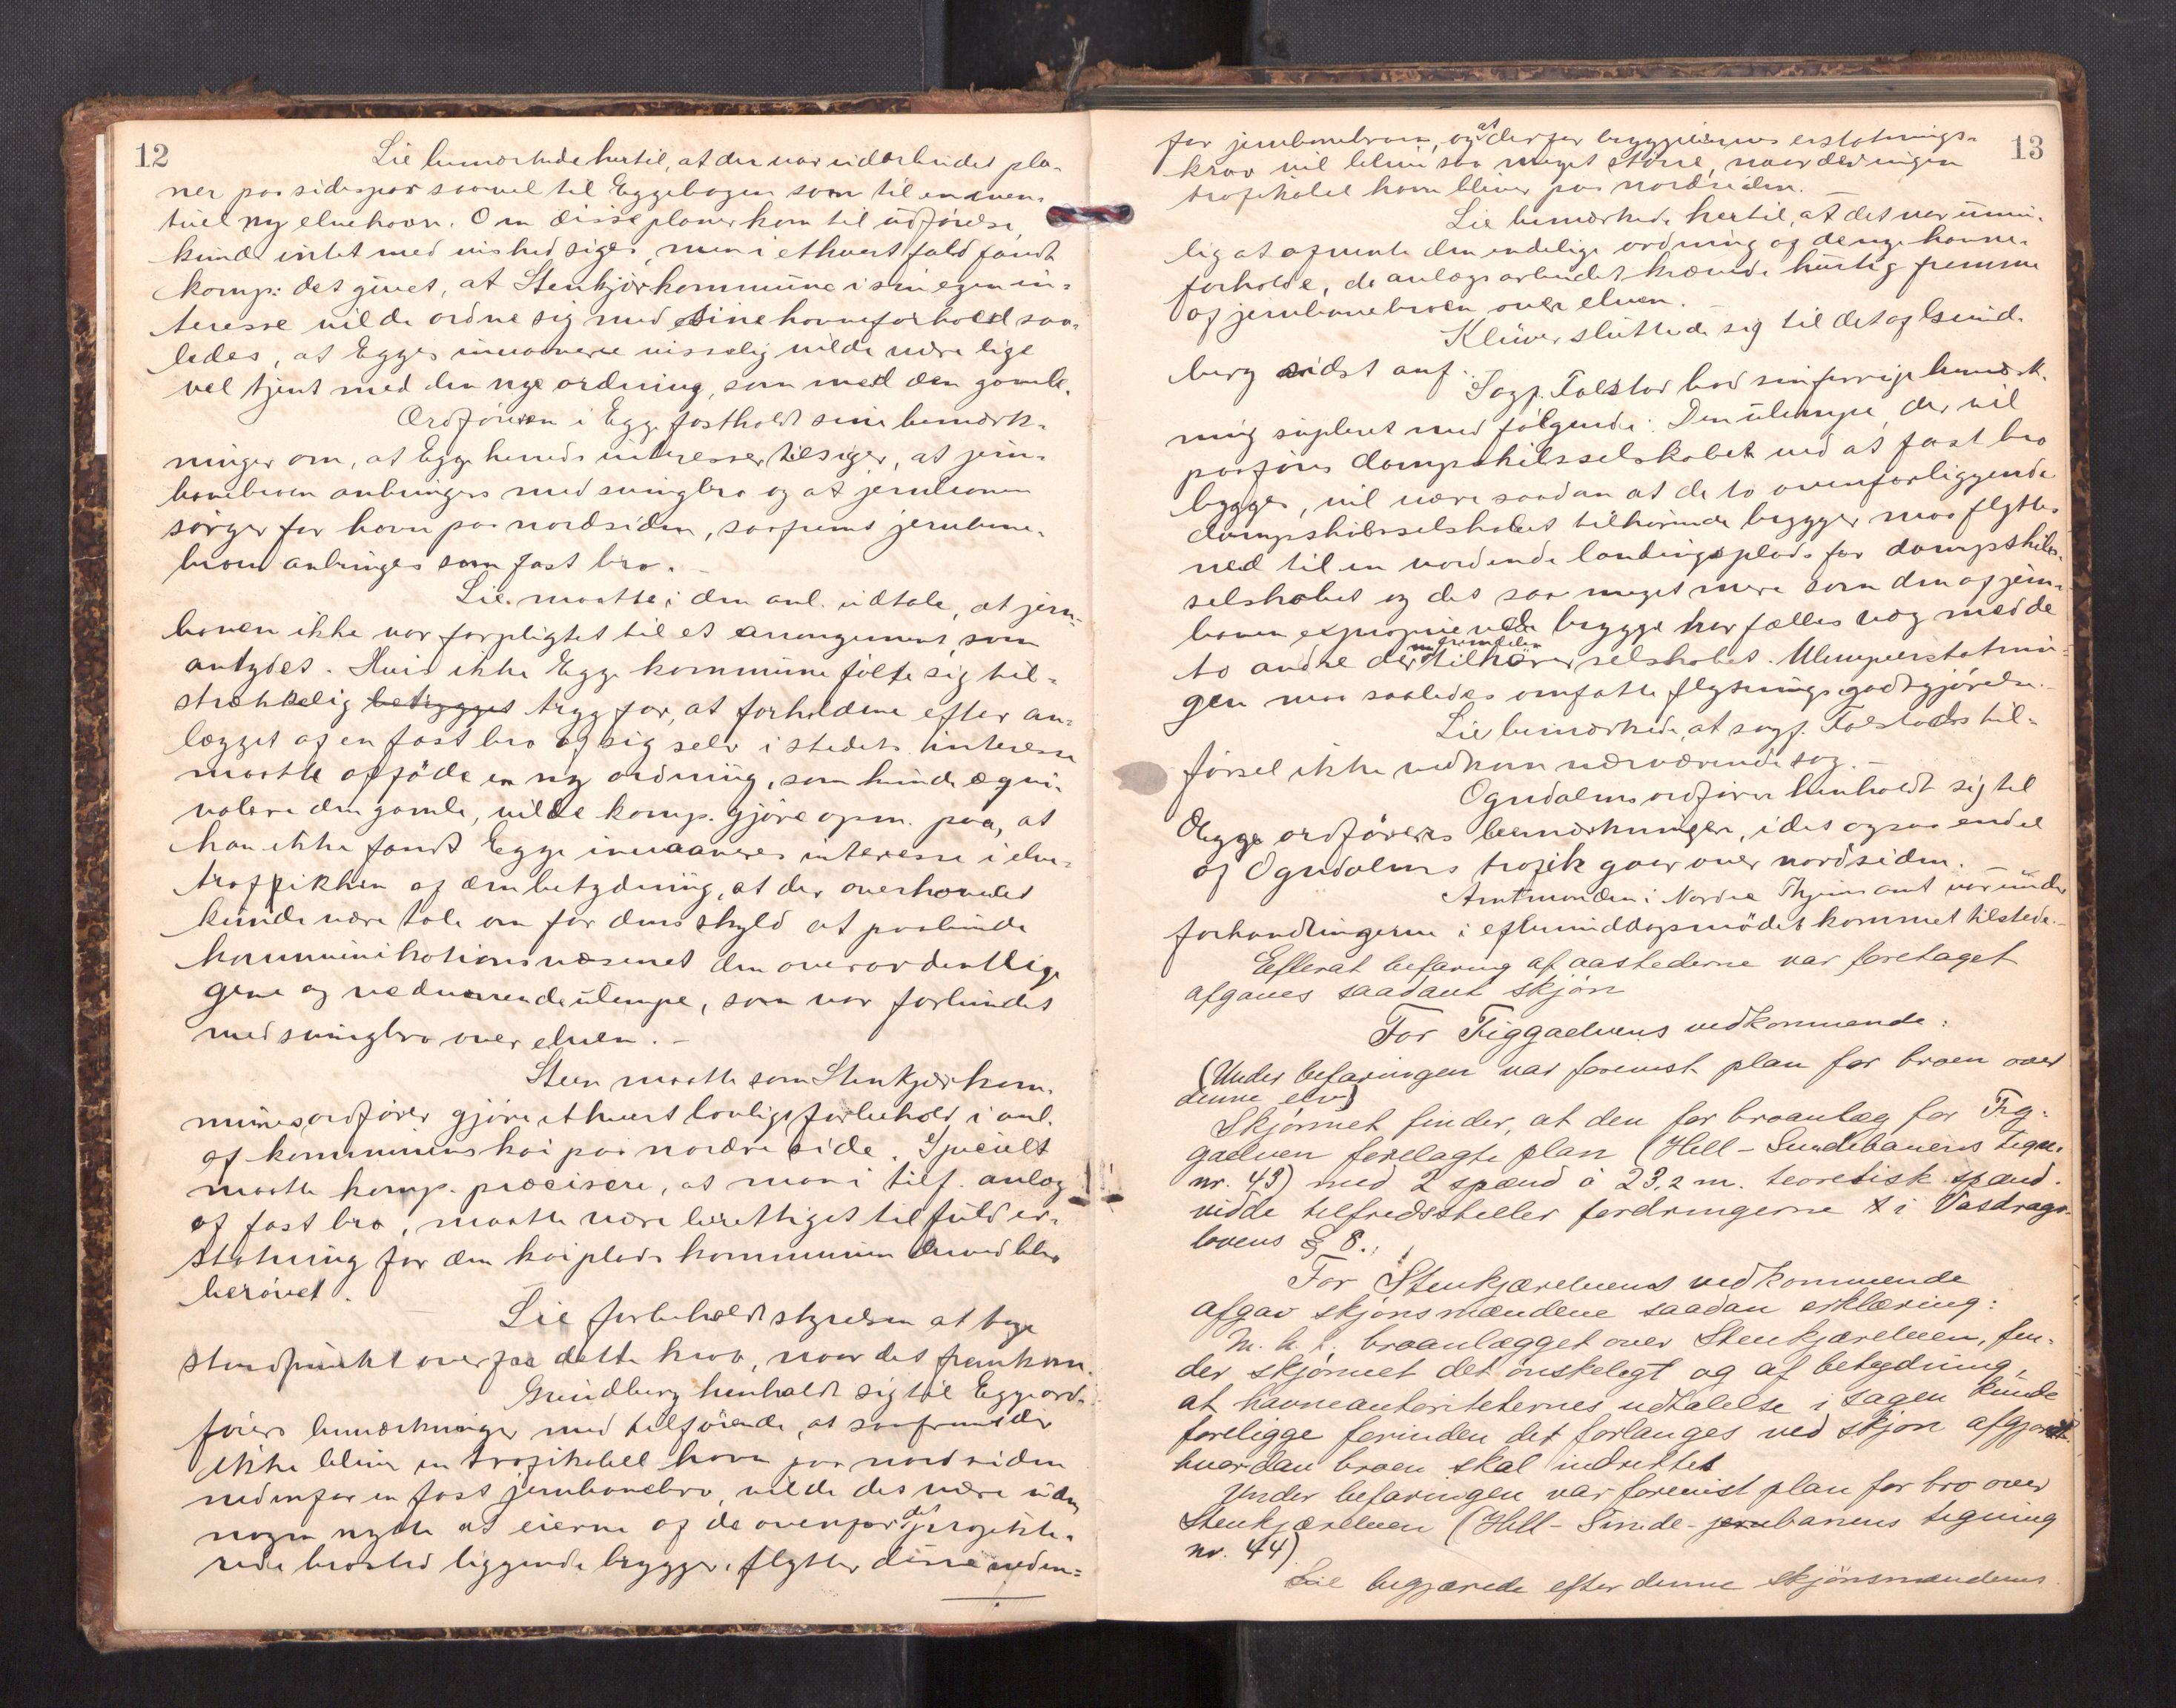 12
Lie bemærkede hertil, at der var udarbeidet pla-
ner paa sidespor saavel til Eggebogen som til en even-
tuel ny elvehavn. Om disse planer kom til udførelse,
kunde intet med vished siges, men i ethvert fald fandt
komp: det givet, at Stenkjær kommune i sin egen in-
teresse vilde ordne sig med sine havneforhold saa-
ledes, at Egges invaanere visselig vilde være lige
vel tjent med den nye ordning, som med den gamle.
Ordføreren i Egge fastholdt sine bemærk-
ninger om, at Egge herreds interesser tilsiger, at jern-
banebroen anbringes med svingbro og at jernbanen
sørger for havn paa nordsiden, saafremt jernbane-
broen anbringes som fast bro. –
Lie maatte i den anl. udtale, at jern-
banen ikke var forpligtet til et arrangement, som
antydet. Hvis ikke Egge kommune følte sig til-
strækkelig betrygget tryg for, at forholdene efter an-
lægget af en fast bro af sig selv i stedets interesse
maatte afføde en ny ordning, som kunde æqui-
valere den gamle, vilde komp. gjøre opm. paa, at
han ikke fandt Egge invaaneres interesse i elve-
traffikken af den betydning, at der overhovedet
kunde være tale om for dens skyld at paabinde
kommunikationsvæsenet den overordentlige
gene og vedvarende ulempe, som var forbundet
med svingbro over elven. –
Steen maatte som Stenkjær kom-
munes ordfører gjøre ethvert lovligt forbehold i anl.
af kommunens kai paa nordre side. Specielt
maatte komp. præcisere, at man i tilf. anlæg
af fast bro, maatte være berettiget til fuld er-
statning for den kaiplads kommunen derved blev
berøvet. –
Lie forbeholdt styrelsen at tage
standpunkt overfor dette krav, naar det fremkom.
Grundberg henholdt sig til Egge ord-
førers bemærkninger med tilføiende, at saafremt der
ikke bliver en trafikabel havn paa nordsiden
nedenfor en fast jernbanebro, vilde det være uden
nogen nytte at eierne af de ovenfor det projekte-
rede brosted liggende brygger, flytter disse neden-
13
for jernbanebroen, og at derfor bryggeiernes erstatnings-
krav vil blive saa meget større, naar der ingen
trafikabel havn bliver paa nordsiden. –
Lie bemærkede hertil, at det var umu-
lig at afvente den endelige ordning af de nye havne-
forholde, da anlægsarbeidet krævede hurtig fremme
af jernbanebroen over elven. –
Klüver sluttede sig til det af Grund-
berg sidst anf.
Sagf. Falstad bad sin forrige bemærk-
ning supleret med følgende: Den ulempe, der vil
paaføres dampskibsselskabet ved at fast bro
bygges, vil være saadan at de to ovenforliggende
dampskibsselskabet tilhørende brygger maa flyttes
ned til en vordende landingsplads for dampskibs-
selskabet og det saa meget mere som den af jern-
banen exproprierede brygge har fælles væg med de
to andre der tilhører selskabet. Ulempeerstatnin-
gen maa saaledes omfatte flytningsgodtgjørelse. –
Lie bemærkede, at sagf. Falstads til-
førsel ikke vedkom nærværende sag. –
Ogndalens ordfører henholdt sig til
Egge ordførers bemærkninger, idet ogsaa endel
af Ogndalens trafik gaar over nordsiden. –
Amtmanden i Nordre Thjems amt var under
forhandlingerne i eftermiddagsmødet kommet tilstede. –
Efterat befaring af aastederne var foretaget
afgaves saadant skjøn
For Figgaelvens vedkommende:
(Under befaringen var forevist plan for broen over
denne elv)
Skjønnet finder, at den for broanlæg for Fig-
gaelven forelagte plan (Hell-Sundebanens tegn.
nr. 43) med 2 spænd à 23,2 m. teoretisk spænd-
vidde tilfredsstiller fordringerne i Vasdrags-
lovens § 8.
For Stenkjærelvens vedkommende
afgav skjønsmændene saadan erklæring:
M. h. t. broanlægget over Stenkjærelven, fin-
der skjønnet det ønskeligt og af betydning,
at havneautoriteternes udtalelse i sagen kunde
foreligge forinden det forlanges ved skjøn afgjort
hvordan broen skal indrettes
Under befaringen var forevist plan for bro over
Stenkjærelven (Hell-Sunde-jernbanens tegning
nr. 44)
Lie begjærede efter denne skjønsmændenes